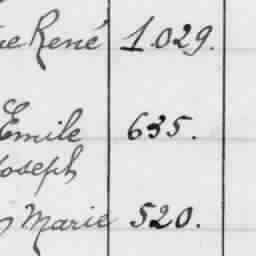 René 1.029.
Emile 635.
Joseph
Marie 520.